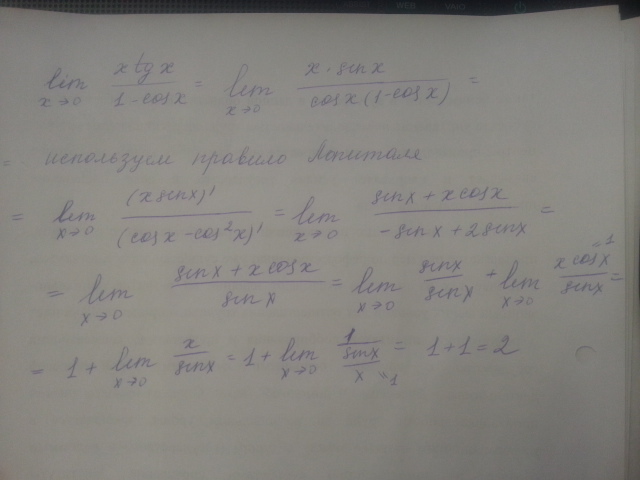 lim x→0 x tg x / 1 - cos x = lim x→0 x · sin x / cos x (1 - cos x) =
= используем правило Лопиталя
= lim x→0 (x sin x)' / (cos x - cos² x)' = lim x→0 sin x + x cos x / - sin x + 2 sin x =
= lim x→0 sin x + x cos x / sin x = lim x→0 sin x / sin x + lim x→0 x cos x = 1 / sin x =
= 1 + lim x→0 x / sin x = 1 + lim x→0 1 / sin x / x = 1 + 1 = 2